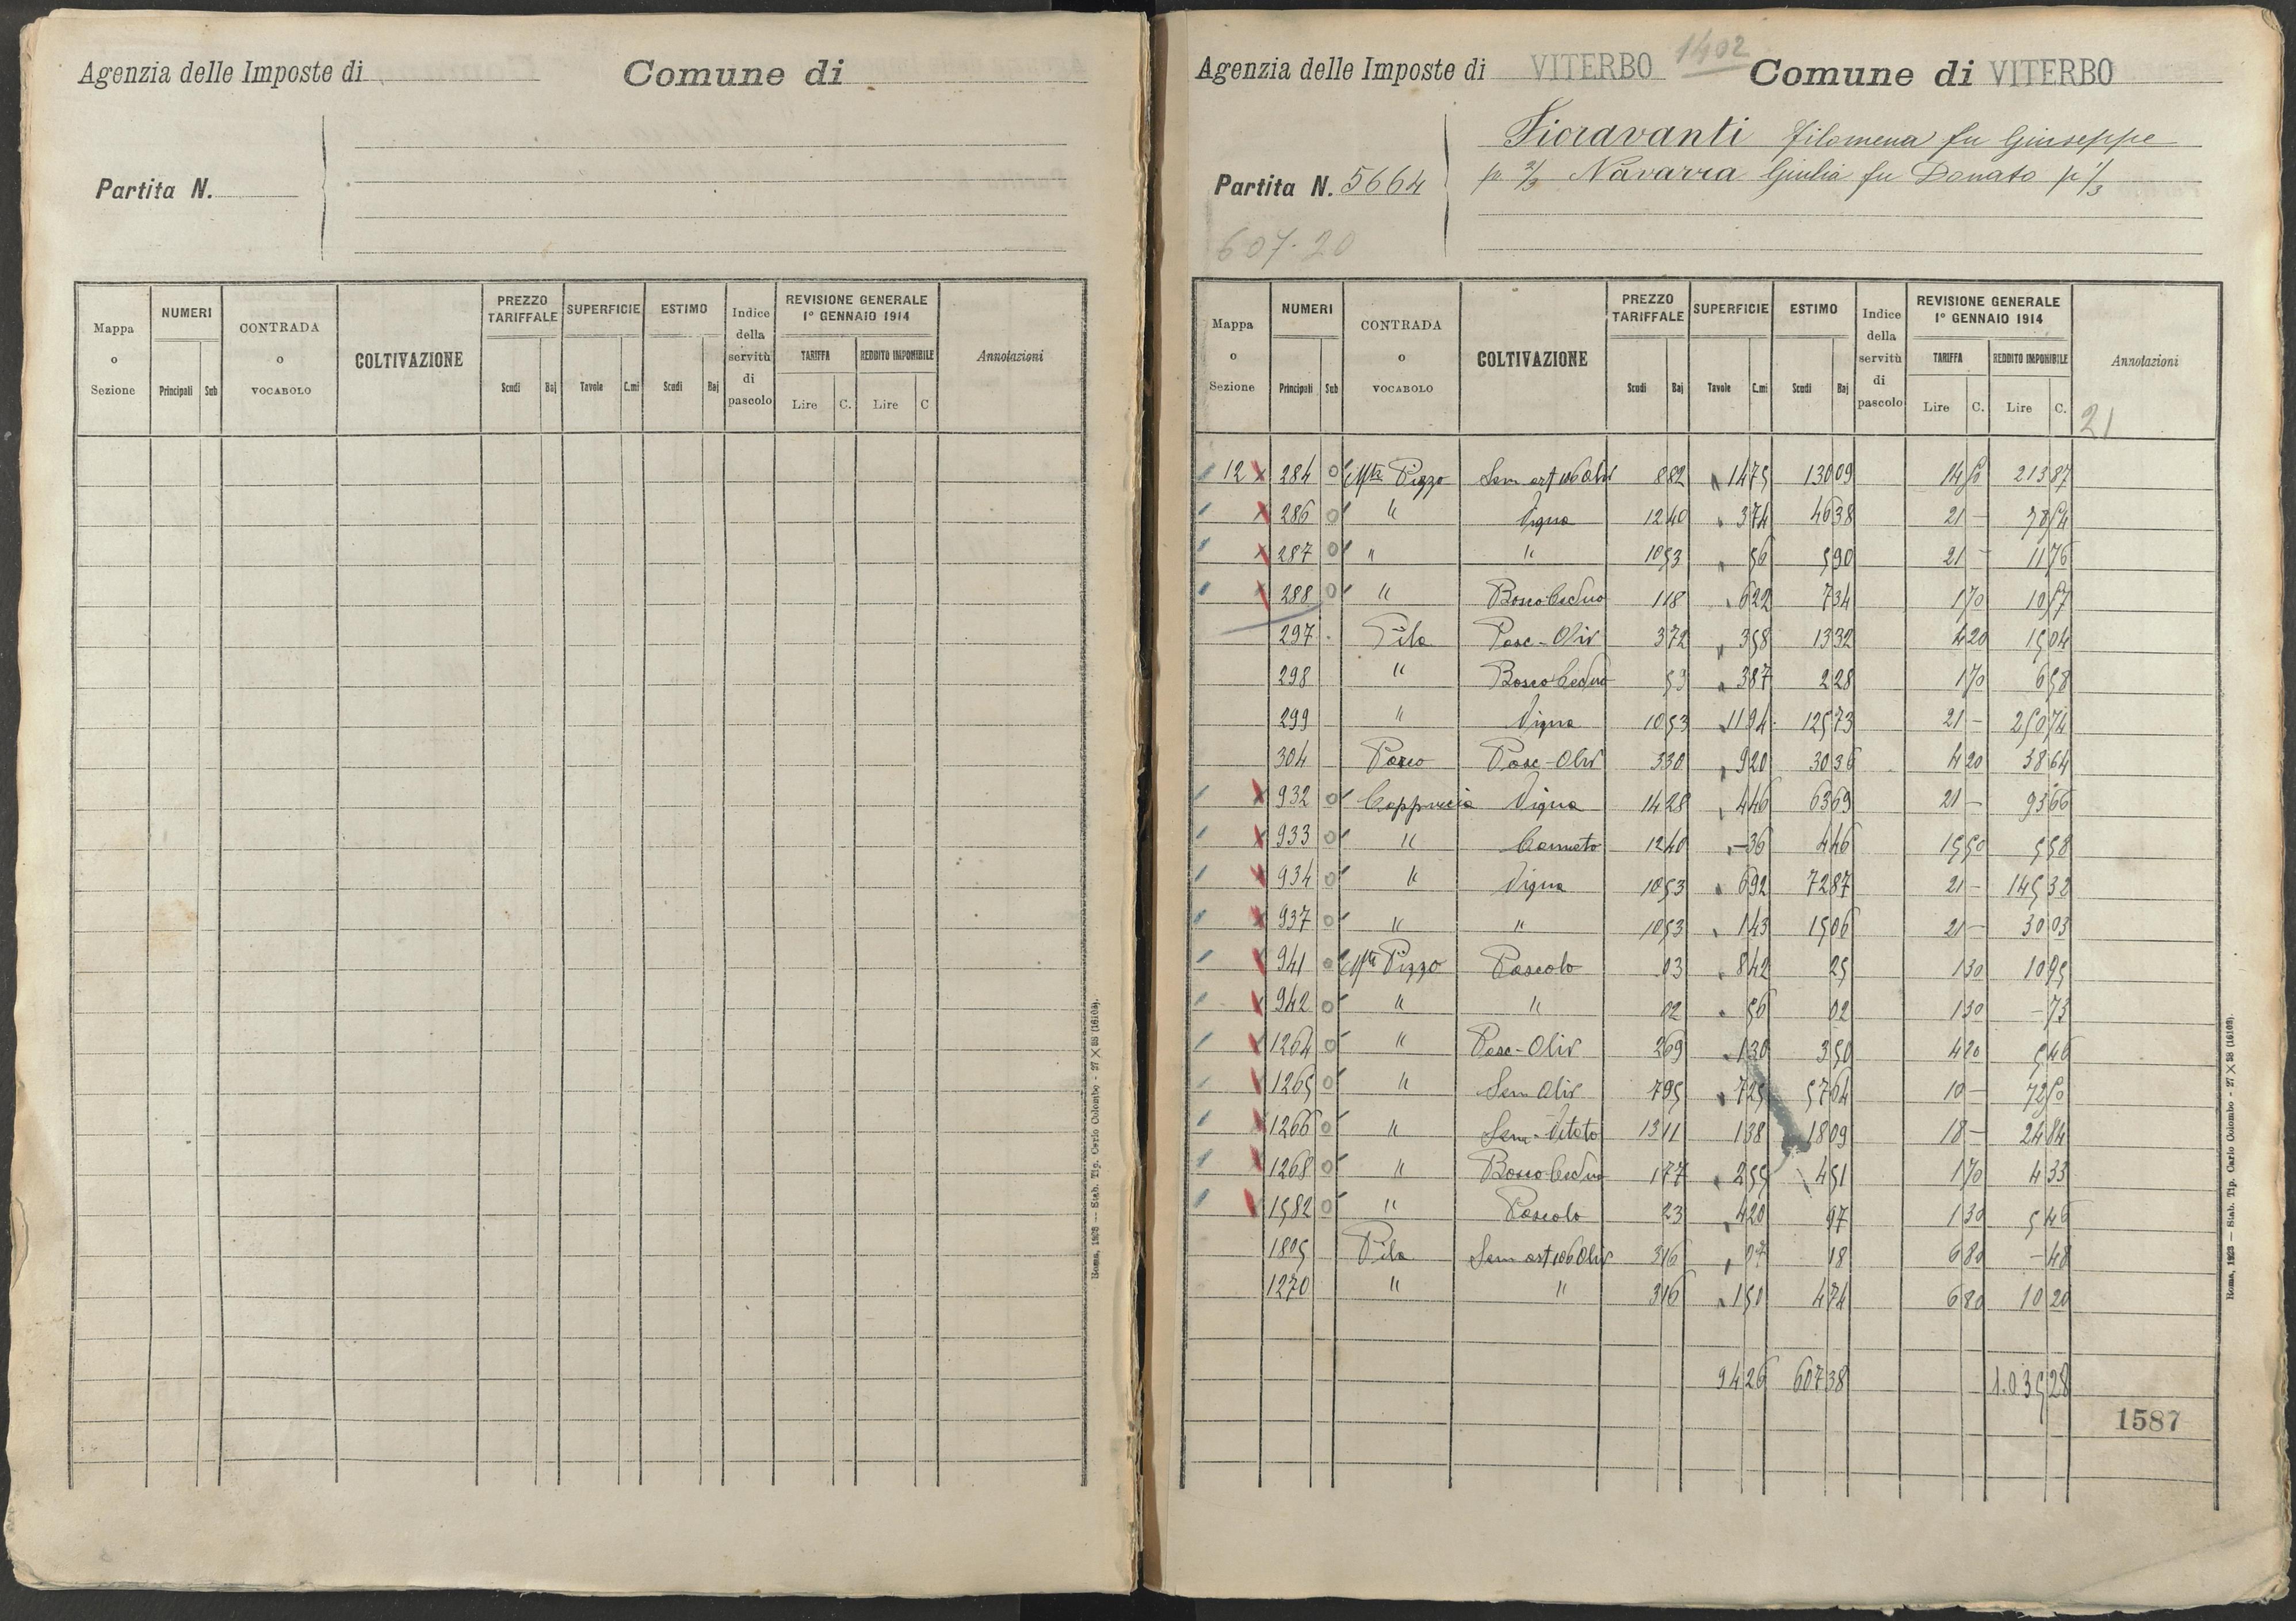 Agenzia delle Imposte di
Comune di
Partita N.
Mappa o Sezione | NUMERI Principali Sub | CONTRADA o VOCABOLO | COLTIVAZIONE | PREZZO TARIFFALE Scudi Baj | SUPERFICIE Tavole C.mi | ESTIMO Scudi Baj | Indice della servitù di pascolo | REVISIONE GENERALE 1° GENNAIO 1914 TARIFFA Lire C. REDDITO IMPONIBILE Lire C | Annotazioni
Roma, 1923 — Stab. Tip. Carlo Colombo - 27 × 38 (16103).
Agenzia delle Imposte di VITERBO 1402 Comune di VITERBO
Fioravanti Filomena fu Giuseppe
Partita N. 5664 p 2/3 Navarra Giulia fu Donato p 1/3
607.20
Mappa o Sezione | NUMERI Principali Sub | CONTRADA o VOCABOLO | COLTIVAZIONE | PREZZO TARIFFALE Scudi Baj | SUPERFICIE Tavole C.mi | ESTIMO Scudi Baj | Indice della servitù di pascolo | REVISIONE GENERALE 1° GENNAIO 1914 TARIFFA Lire C. REDDITO IMPONIBILE Lire C. | Annotazioni
21
12 x 284 0 Pizzo 8 82 14 75 130 09 14 50 213 87
x 286 0 " Vigna 12 40 3 74 46 38 21 - 78 54
x 287 0 " " 10 53 56 5 90 21 - 11 76
x 288 0 " Bosco Ceduo 1 18 6 22 7 34 1 70 10 57
297 Pila Pasc-Oliv 3 72 3 58 13 32 4 20 15 04
298 " Bosco Ceduo 53 3 87 2 28 1 70 6 58
299 " Vigna 10 53 11 94 125 73 21 - 250 74
304 Parco Pasc-Oliv 3 30 9 20 30 36 4 20 38 64
x 932 0 Cappuccia Vigna 14 28 4 46 63 69 21 - 93 66
x 933 0 " Canneto 12 40 - 36 4 46 15 50 5 58
x 934 0 " Vigna 10 53 6 92 72 87 21 - 145 32
x 937 0 " " 10 53 1 43 15 06 21 - 30 03
x 941 0 Pizzo Pascolo 03 8 42 25 1 30 10 95
x 942 0 " " 02 56 02 1 30 - 73
x 1264 0 " Pasc-Oliv 2 69 1 30 3 50 4 20 5 46
x 1265 0 " Sem Oliv 7 95 7 25 57 64 10 - 72 50
x 1266 0 " Sem-Vitato 13 11 1 38 18 09 18 - 24 84
x 1268 0 " Bosco Ceduo 1 77 2 55 4 51 1 70 4 33
x 1582 0 " Pascolo 23 4 20 97 1 30 5 46
1805 Pila 3 16 07 18 6 80 - 48
1270 " " 3 16 1 50 4 74 6 80 10 20
94 26 607 38 1.035 28
1587
Roma, 1923 — Stab. Tip. Carlo Colombo - 27 × 38 (16103).